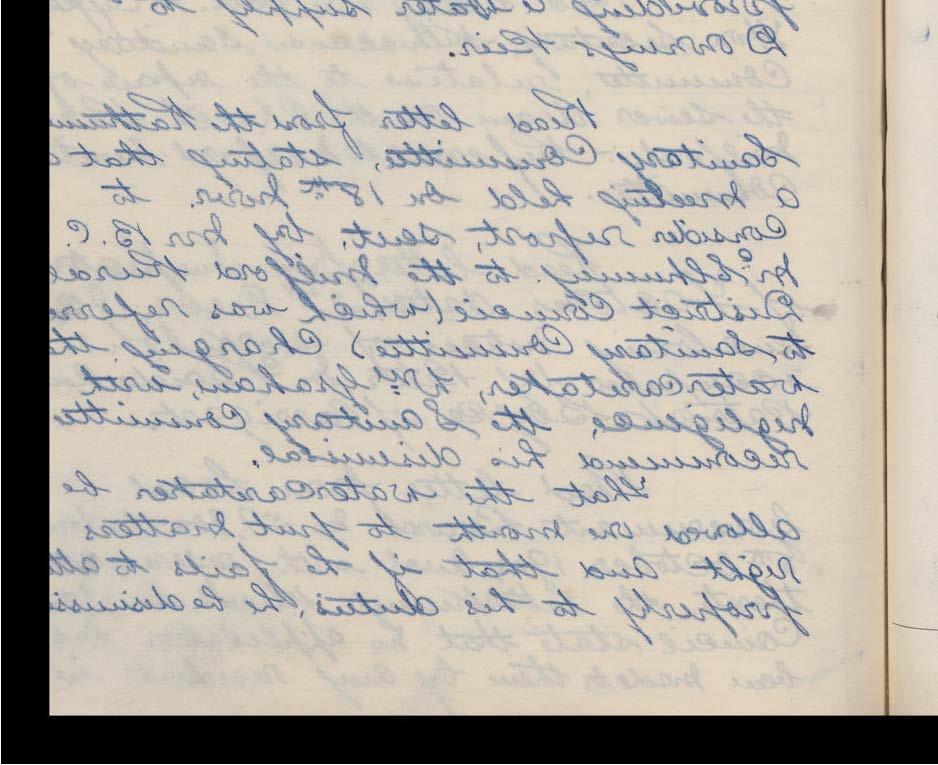 providing a water supply to
Downings Pier.
Read letter from the Rathmu
Sanitary Committee, stating that
a meeting held on 18th Novr. to
consider report, sent, by Mr B. C.
McElhinney to the Milford Rural
District Council (which was referre
to Sanitary Committee) Charging the
water caretaker, Wm Graham, with
negligence, the Sanitary Committee
recommend his dismissal.
That the water caretaker be
allowed one month to put matters
right and that if he fails to att
properly to his duties, he be dismiss